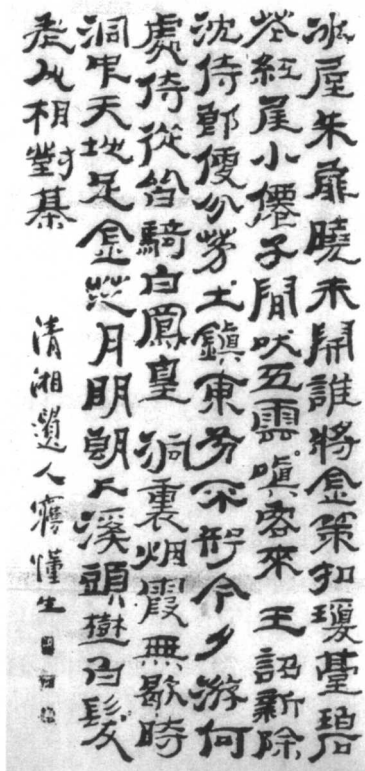 冰屋朱扉曉未開誰將金策扣瓊臺碧
花紅尾小僊子閒吠五雲嗔客來王詔新除
沈侍郎便分茅土鎮東方不知今夕游何
處侍從皆騎白鳳皇洞裏烟霞無歇時
洞中天地足金芝月明朗〻溪頭樹白髮
老人相對棊
清湘遺人生